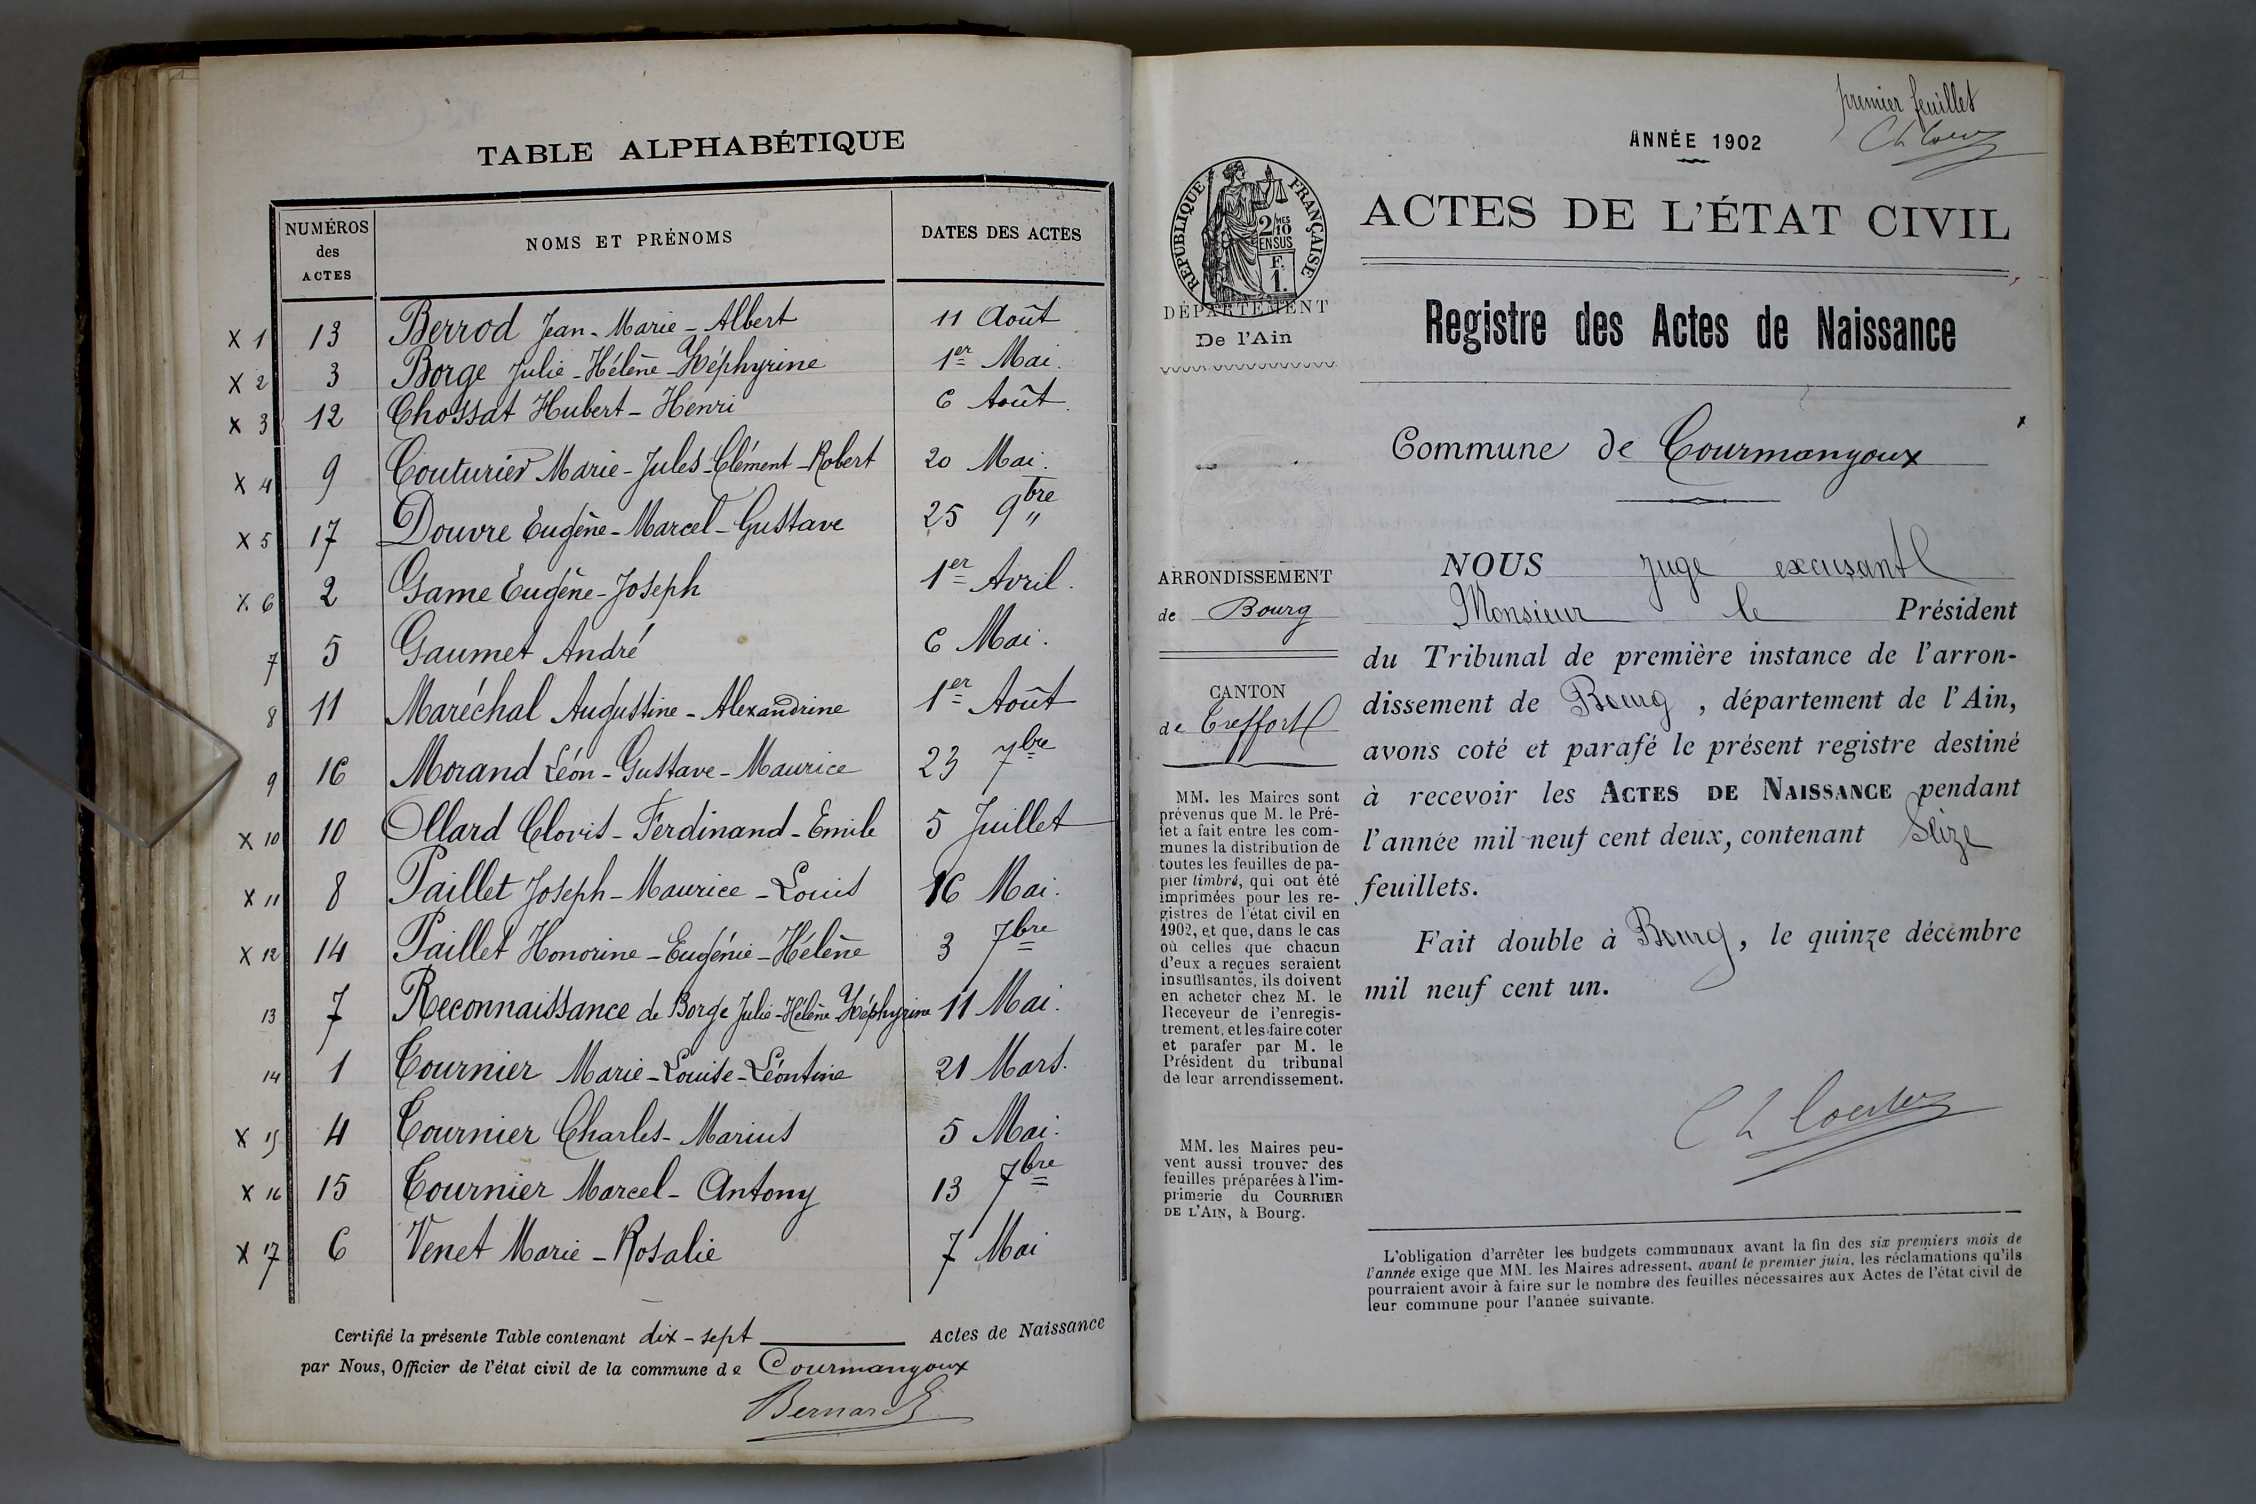 TABLE ALPHABÉTIQUE
NUMÉROS des ACTES NOMS ET PRÉNOMS DATES DES ACTES
x 1 13 Berrod Jean-Marie-Albert 11 Août
x 2 3 Borge Julie-Hélène-Zéphyrine 1er Mai.
x 3 12 Chossat Hubert-Henri 6 Août.
x 4 9 Couturier Marie-Jules-Clément-Robert 20 Mai.
x 5 17 Douvre Eugène-Marcel-Gustave 25 9bre
x 6 2 Game Eugène-Joseph 1er Avril.
7 5 Gaumet André 6 Mai.
8 11 Maréchal Augustine-Alexandrine 1er Août
9 16 Morand Léon-Gustave-Maurice 23 7bre
x 10 10 Ollard Clovis-Ferdinand-Emile 5 Juillet
x 11 8 Paillet Joseph-Maurice-Louis 16 Mai.
x 12 14 Paillet Honorine-Eugénie-Hélène 3 7bre
13 7 Reconnaissance de Borge Julie-Hélène Zéphyrine 11 Mai.
14 1 Tournier Marie-Louise-Léontine 21 Mars.
x 15 4 Tournier Charles-Marius 5 Mai.
x 16 15 Tournier Marcel-Antony 13 7bre
x 17 6 Venet Marie-Rosalie 7 Mai
Certifié la présente Table contenant dix-sept Actes de Naissance
par Nous, Officier de l'état civil de la commune de Courmangoux
Bernard
premier feuillet
ANNÉE 1902
RÉPUBLIQUE FRANÇAISE
2/10 MES
EN SUS
F.
1.
ACTES DE L'ÉTAT CIVIL
DÉPARTEMENT
De l'Ain
Registre des Actes de Naissance
Commune de Courmangoux
ARRONDISSEMENT
de Bourg
CANTON
de Treffort
MM. les Maires sont
prévenus que M. le Pré-
fet a fait entre les com-
munes la distribution de
toutes les feuilles de pa-
pier timbré, qui ont été
imprimées pour les re-
gistres de l'état civil en
1902, et que, dans le cas
où celles que chacun
d'eux a reçues seraient
insuffisantes, ils doivent
en acheter chez M. le
Receveur de l'enregis-
trement, et les faire coter
et parafer par M. le
Président du tribunal
de leur arrondissement.
MM. les Maires peu-
vent aussi trouver des
feuilles préparées à l'im-
primerie du COURRIER
DE L'AIN, à Bourg.
NOUS juge excusant
Monsieur le Président
du Tribunal de première instance de l'arron-
dissement de Bourg, département de l'Ain,
avons coté et parafé le présent registre destiné
à recevoir les ACTES DE NAISSANCE pendant
l'année mil neuf cent deux, contenant Seize
feuillets.
Fait double à Bourg, le quinze décembre
mil neuf cent un.
L'obligation d'arrêter les budgets communaux avant la fin des six premiers mois de
l'année exige que MM. les Maires adressent, avant le premier juin, les réclamations qu'ils
pourraient avoir à faire sur le nombre des feuilles nécessaires aux Actes de l'état civil de
leur commune pour l'année suivante.